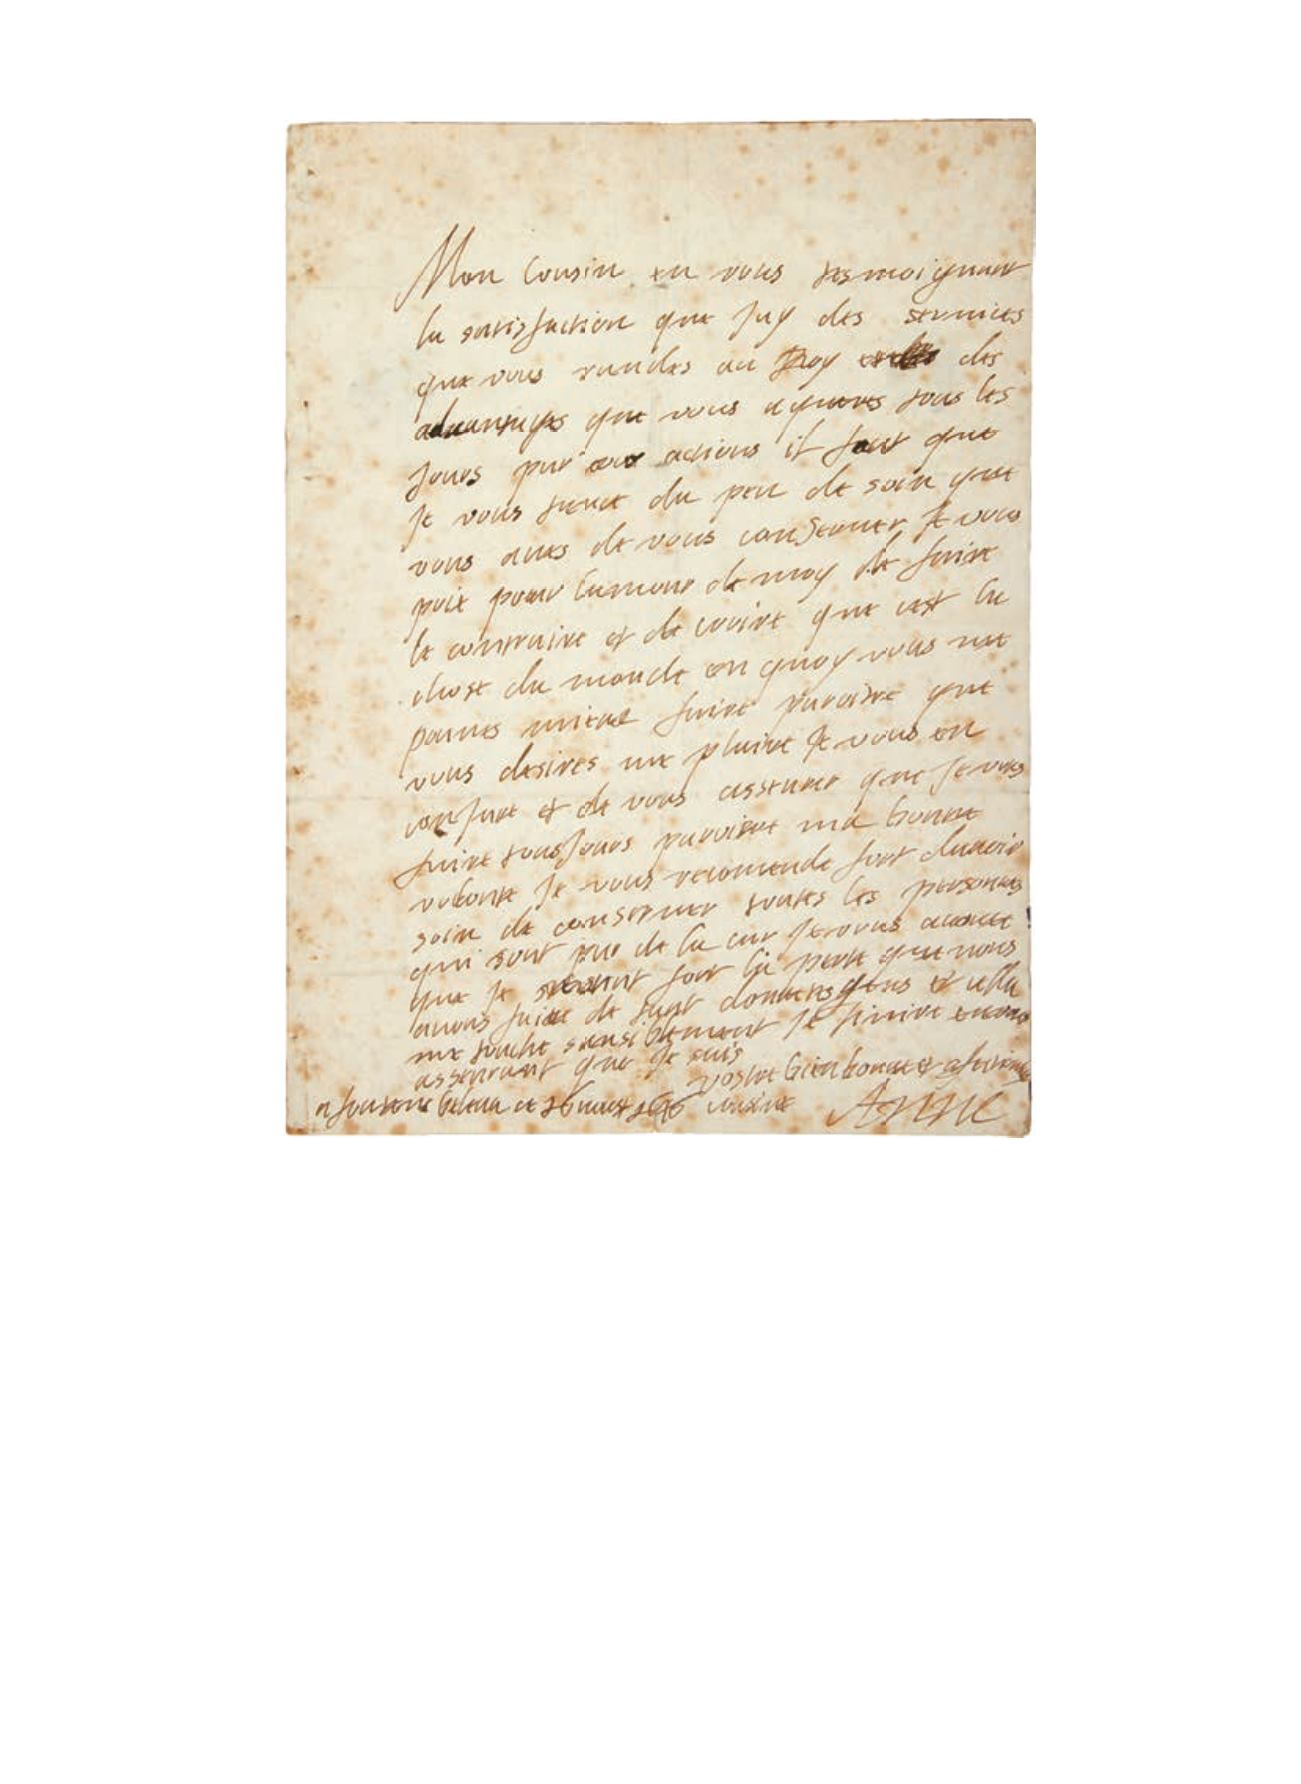 Mon Cousin en vous tesmoignant
la satisfaction que Jay des servises
que vous randes au Roy des
advantages que vous aqueres tous les
Jours par vos actions il faut que
Je vous tence du peu de soin que
vous aves de vous conserver Je vous
prie pour lamour de moy de faire
le contraire et de croire que cest la
chose du monde en quoy vous me
pouves mieux faire paroitre que
vous desires me plaire Je vous en
conJure et de vous asseurer que Je vous
faire tousJours paroitre ma bonne
volonte Je vous recomende fort davoir
soin de conserver toutes les personnes
qui sont par de la car Je vous avoue
que Je resent fort la perte que nous
avons faite de tant donnetes gens et cella
me touche sansiblement Je finire en vous
asseurant que Je suis
vostre bien bonne et afectionee
a fontene beleau ce 26 1646 cousine ANNE